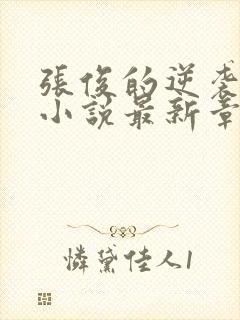 張俊的逆袭
小説最新章
憐黛佳人1